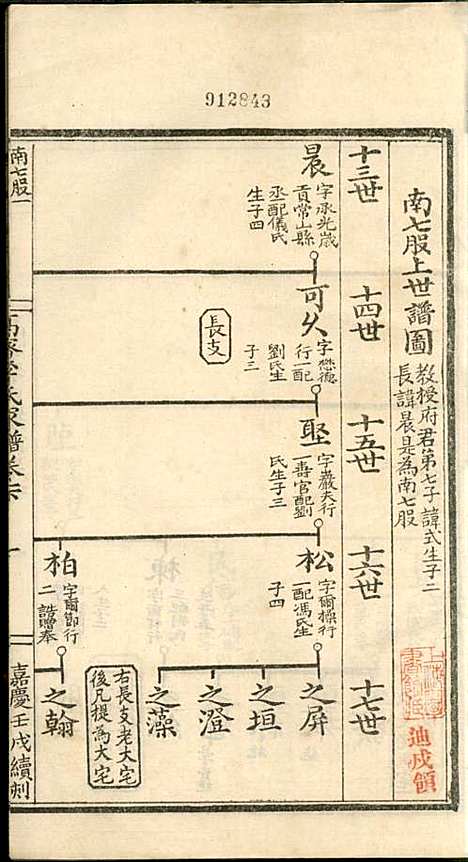 912843
南七股上世譜圖
教授府君第七子諱式生子二
長諱晨是為南七股
迪戍領
十三世
十四世
十五世
十六世
十七世
晨
字承光歲
貢常山縣
丞配儀氏
生子四
可久
字懋德
行一配
劉氏生
子三
長支
堅
字巖夫行
一壽官配劉
氏生子三
松
字爾操行
一配馮氏生
子四
柏
字爾節行
二 誥贈奉
之屏
之垣
之澄
之藻
之翰
右長支老大宅
後凡提為大宅
南七股一
氏家譜卷六
嘉慶壬戌續刻